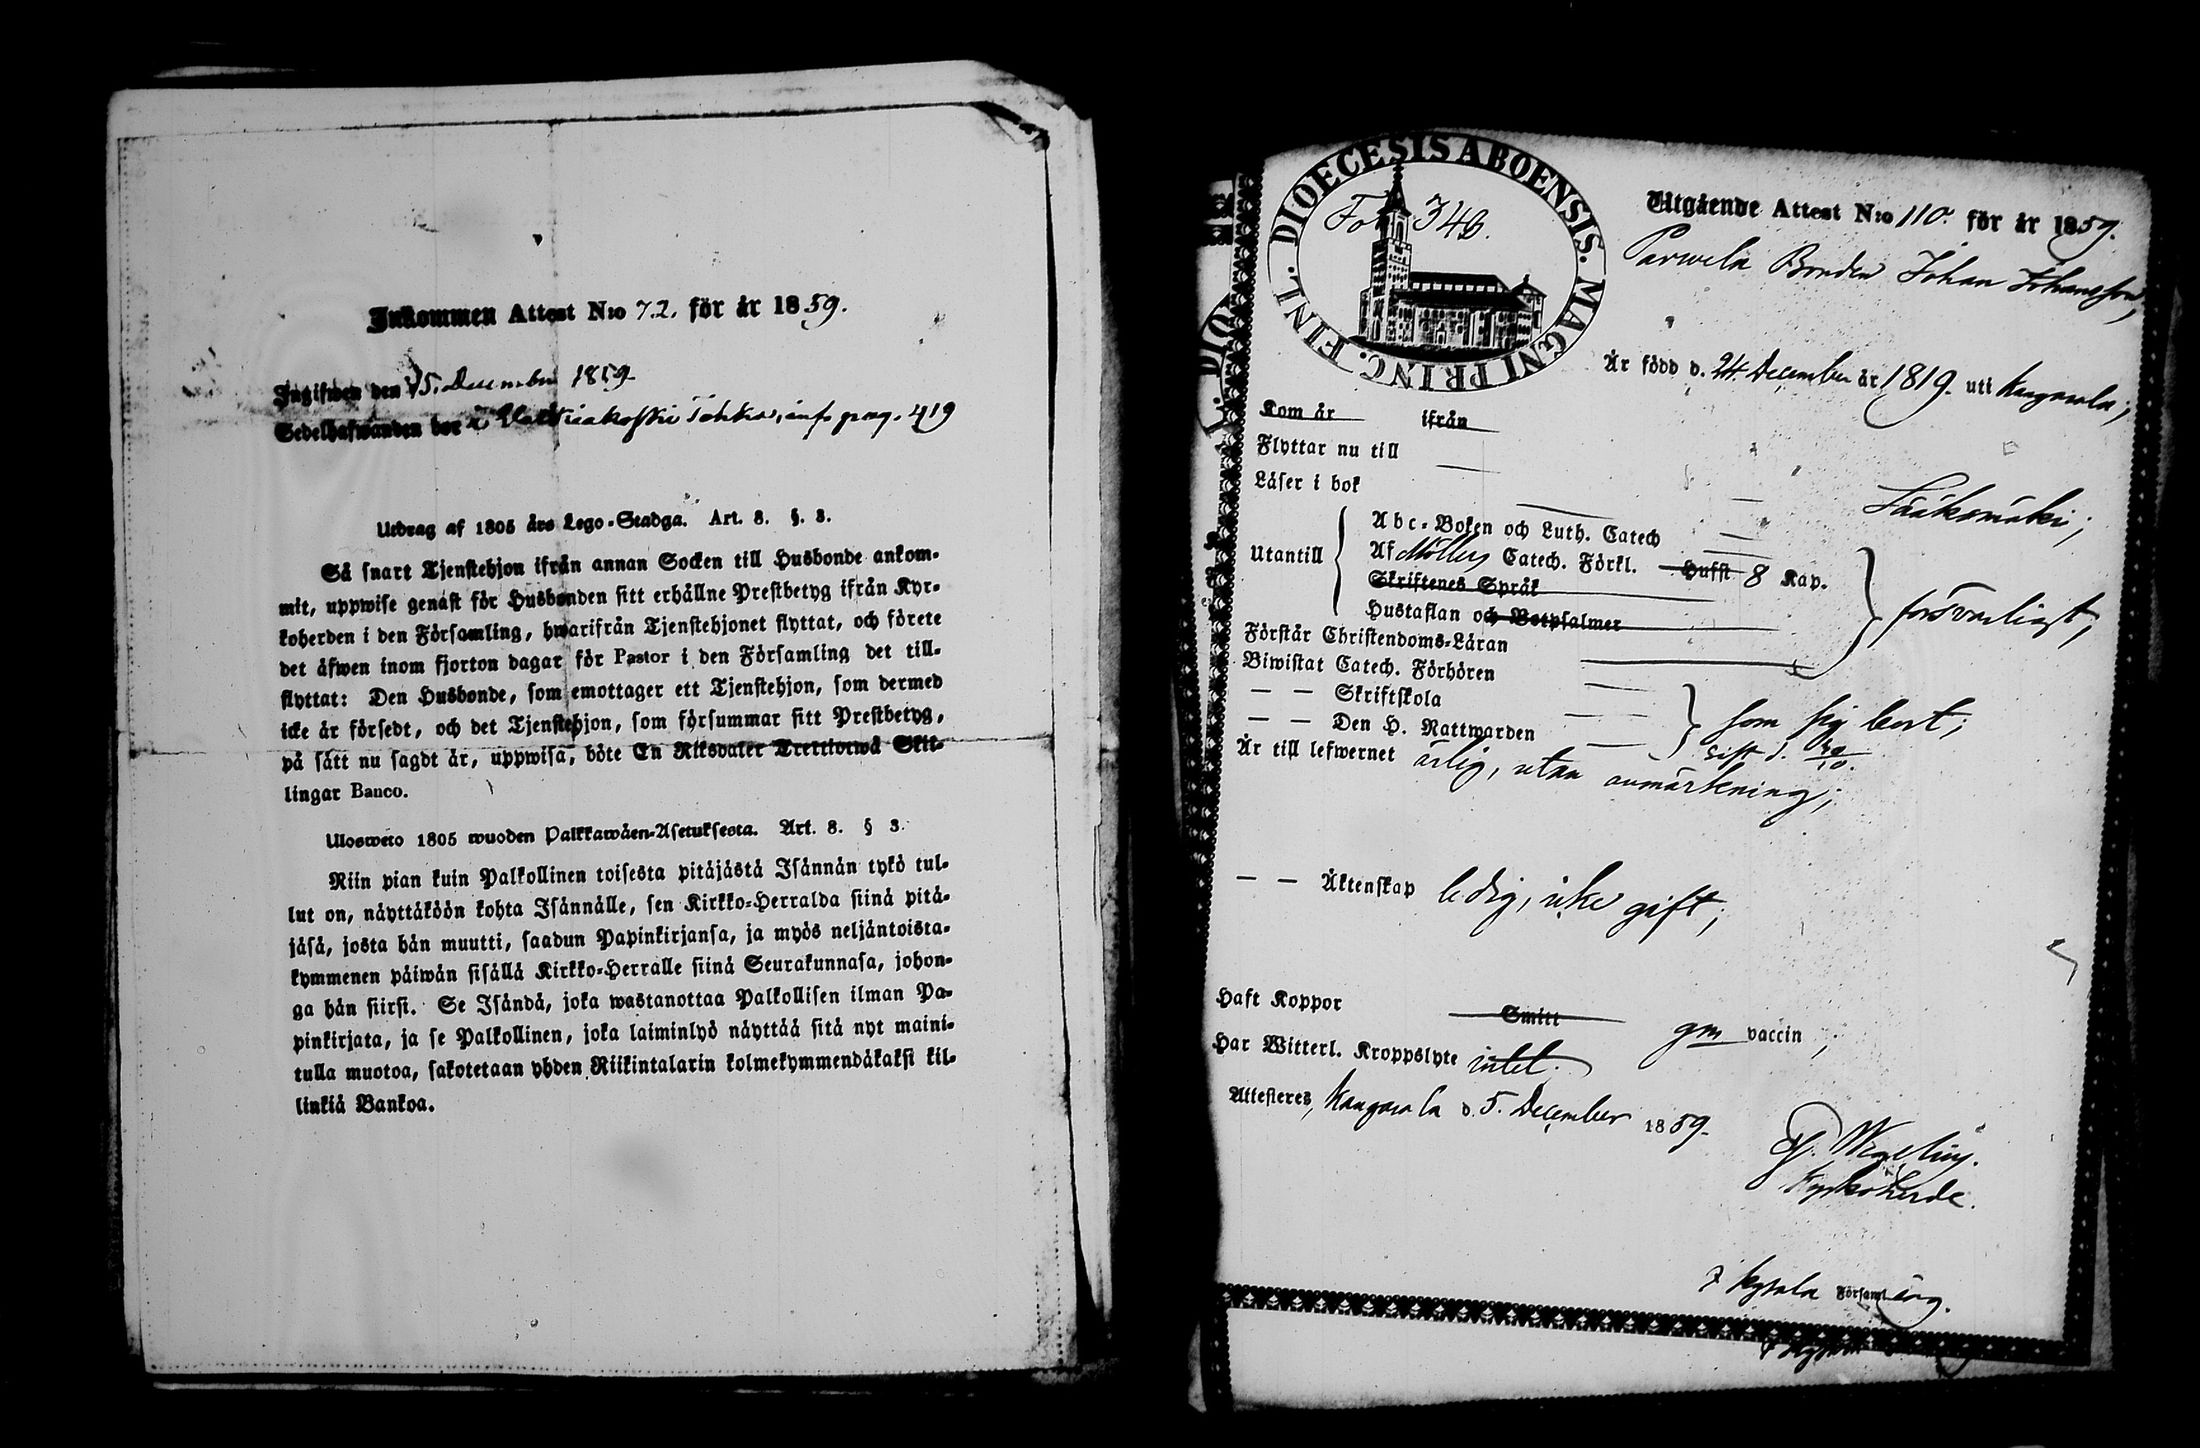 Inkommen Attest N:o 72. för år 1859.
Ingifwen den 15. December 1859
Sedelhafwanden bor i Walkiakoski införs pag. 419
Utdrag af 1805 års Lego-Stadga. Art. 8. §. 3.
Så snart Tjenstehjon ifrån annan Socken till Husbonde ankom-
mit, uppwise genast för Husbonden sitt erhållne Prestbetyg ifrån Kyr-
koherden i den Församling, hwarifrån Tjenstehjonet flyttat, och förete
det äfwen inom fjorton dagar för Pastor i den Församling det till-
flyttat: Den Husbonde, som emottager ett Tjenstehjon, som dermed
icke är försedt, och det Tjenstehjon, som försummar sitt Prestbetyg,
på sätt nu sagdt är, uppwisa, böte En Riksdaler Trettiotwå Skil-
lingar Banco.
Ulosweto 1805 wuoden Palkkawäen-Asetuksesta. Art. 8. § 3.
Niin pian kuin Palkollinen toisesta pitäjästä Isännän tykö tul-
lut on, näyttäköön kohta Isännälle, sen Kirkko-Herralda siinä pitä-
jäsä, josta hän muutti, saadun Papinkirjansa, ja myös neljäntoista-
kymmenen päiwän sisällä Kirkko-Herralle siinä Seurakunnasa, johon-
ga hän siirsi. Se Isändä, joka wastanottaa Palkollisen ilman Pa-
pinkirjata, ja se Palkollinen, joka laiminlyö näyttää sitä nyt maini-
tulla muotoa, sakotetaan yhden Riikintalarin kolmekymmendäkaksi kil-
linkiä Bankoa.
DIOECESIS ABOENSIS. MAGNI PRINC. FINL.
Fol. 346.
Utgående Attest N:o 110. för år 1859.
Parwela Bonden Johan Johansson,
Är född d. 24 December år 1819. uti Kangasala;
Kom år ifrån
Flyttar nu till
Sääksmäki;
Läser i bok
Utantill
Abc-Boken och Luth. Catech
Af Möllers Catech. Förkl. Hufst 8 Kap.
Skriftenes Språk
Hustaflan och Botpsalmer
försvarligt,
Förstår Christendoms-Läran
Biwistat Catech. Förhören
— — Skriftskola
— — Den H. Nattwarden
som sig bort;
sist d. 30/10.
Är till lefwernet ärlig, utan anmärkning;
— — Äktenskap ledig, icke gift;
Haft Koppor Smitt gm vaccin;
Har Witterl. Kroppslyte intet.
Attesteres, Kangasala d. 5. December 1859.
Wegelius.
Kyrkoherde.
Församling.